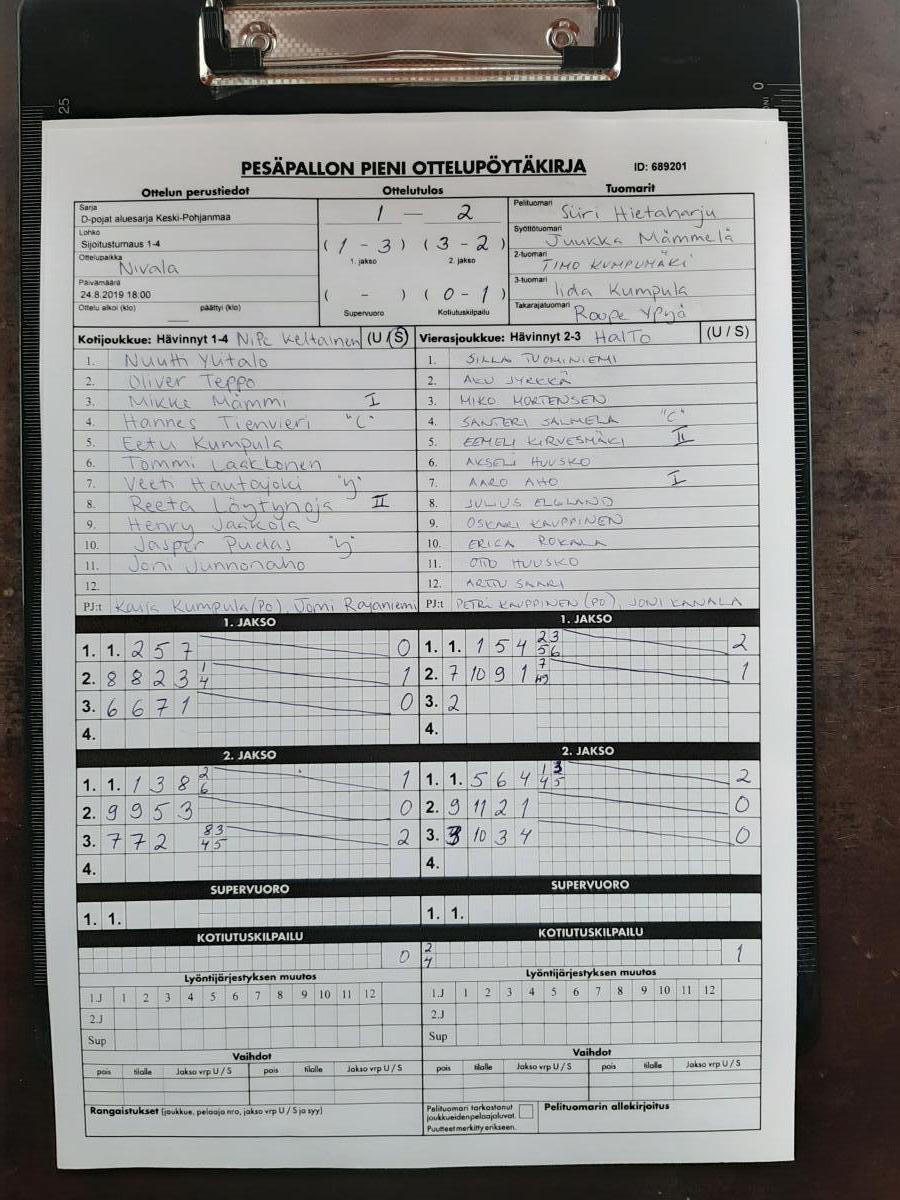 25
0
PESÄPALLON PIENI OTTELUPÖYTÄKIRJA ID: 689201
Ottelun perustiedot Ottelutulos Tuomarit
Sarja
D-pojat aluesarja Keski-Pohjanmaa
Lohko
Sijoitusturnaus 1-4
Ottelupaikka
Nivala
Päivämäärä
24.8.2019 18:00
Ottelu alkoi (klo) päättyi (klo)
1 — 2
( 1 - 3 ) ( 3 - 2 )
1. jakso 2. jakso
( - ) ( 0 - 1 )
Supervuoro Kotiutuskilpailu
Pelituomari Siiri Hietaharju
Syöttötuomari Juukka Mämmelä
2-tuomari TIMO KUMPUMÄKI
3-tuomari Iida Kumpula
Takarajatuomari Roope Ypyä
Kotijoukkue: Hävinnyt 1-4 NiPe Keltainen (U / S)
1. Nuutti Ylitalo
2. Oliver Teppo
3. Mikke Mämmi I
4. Hannes Tienvieri "C"
5. Eetu Kumpula
6. Tommi Laakkonen
7. Veeti Hautajoki "y"
8. Reeta Löytynoja II
9. Henry Jaakola
10. Jasper Pudas "y"
11. Joni Junnonaho
12.
PJ:t Kaija Kumpula (PO), Jomi Rajaniemi
Vierasjoukkue: Hävinnyt 2-3 HalTo (U / S)
1. SILLA TUOMINIEMI
2. AKU JYRKKÄ
3. MIKO MORTENSEN
4. SANTERI SALMELA "C"
5. EEMELI KIRVESMÄKI II
6. AKSELI HUUSKO
7. AARO AHO I
8. JULIUS ELGLAND
9. OSKARI KAUPPINEN
10. ERICA ROKALA
11. OTTO HUUSKO
12. ARTTU SAARI
PJ:t PETRI KAUPPINEN (PO), JONI KANALA
1. JAKSO
1. 1. 2 5 7 0
2. 8 8 2 3 1 4 1
3. 6 6 7 1 0
4.
1. JAKSO
1. 1. 1 5 4 23 56 2
2. 7 10 9 1 7 1
3. 2
4.
2. JAKSO
1. 1. 1 3 8 2 6 1
2. 9 9 5 3 0
3. 7 7 2 83 45 2
4.
2. JAKSO
1. 1. 5 6 4 13 45 2
2. 9 11 2 1 0
3. 3 10 3 4 0
4.
SUPERVUORO
1. 1.
SUPERVUORO
1. 1.
KOTIUTUSKILPAILU
0
KOTIUTUSKILPAILU
2 4 1
Lyöntijärjestyksen muutos
1.J 1 2 3 4 5 6 7 8 9 10 11 12
2.J
Sup
Lyöntijärjestyksen muutos
1.J 1 2 3 4 5 6 7 8 9 10 11 12
2.J
Sup
Vaihdot
pois tilalle Jakso vrp U / S pois tilalle Jakso vrp U / S
Vaihdot
pois tilalle Jakso vrp U / S pois tilalle Jakso vrp U / S
Rangaistukset (joukkue, pelaaja nro, jakso vrp U / S ja syy)
Pelituomari tarkastanut
joukkueidenpelaajaluvat.
Puutteet merkitty erikseen.
Pelituomarin allekirjoitus